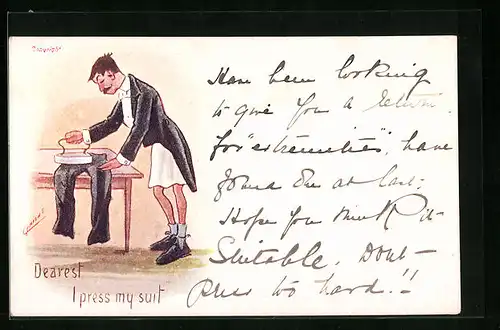 Have been looking
to give you a return
for "extremities", have
found one at last;
Hope you think it
Suitable. Dont
press too hard!!
Dearest
I press my suit